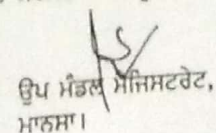 ਉਪ ਮੰਡਲ ਮੈਜਿਸਟਰੇਟ,
ਮਾਨਸਾ।